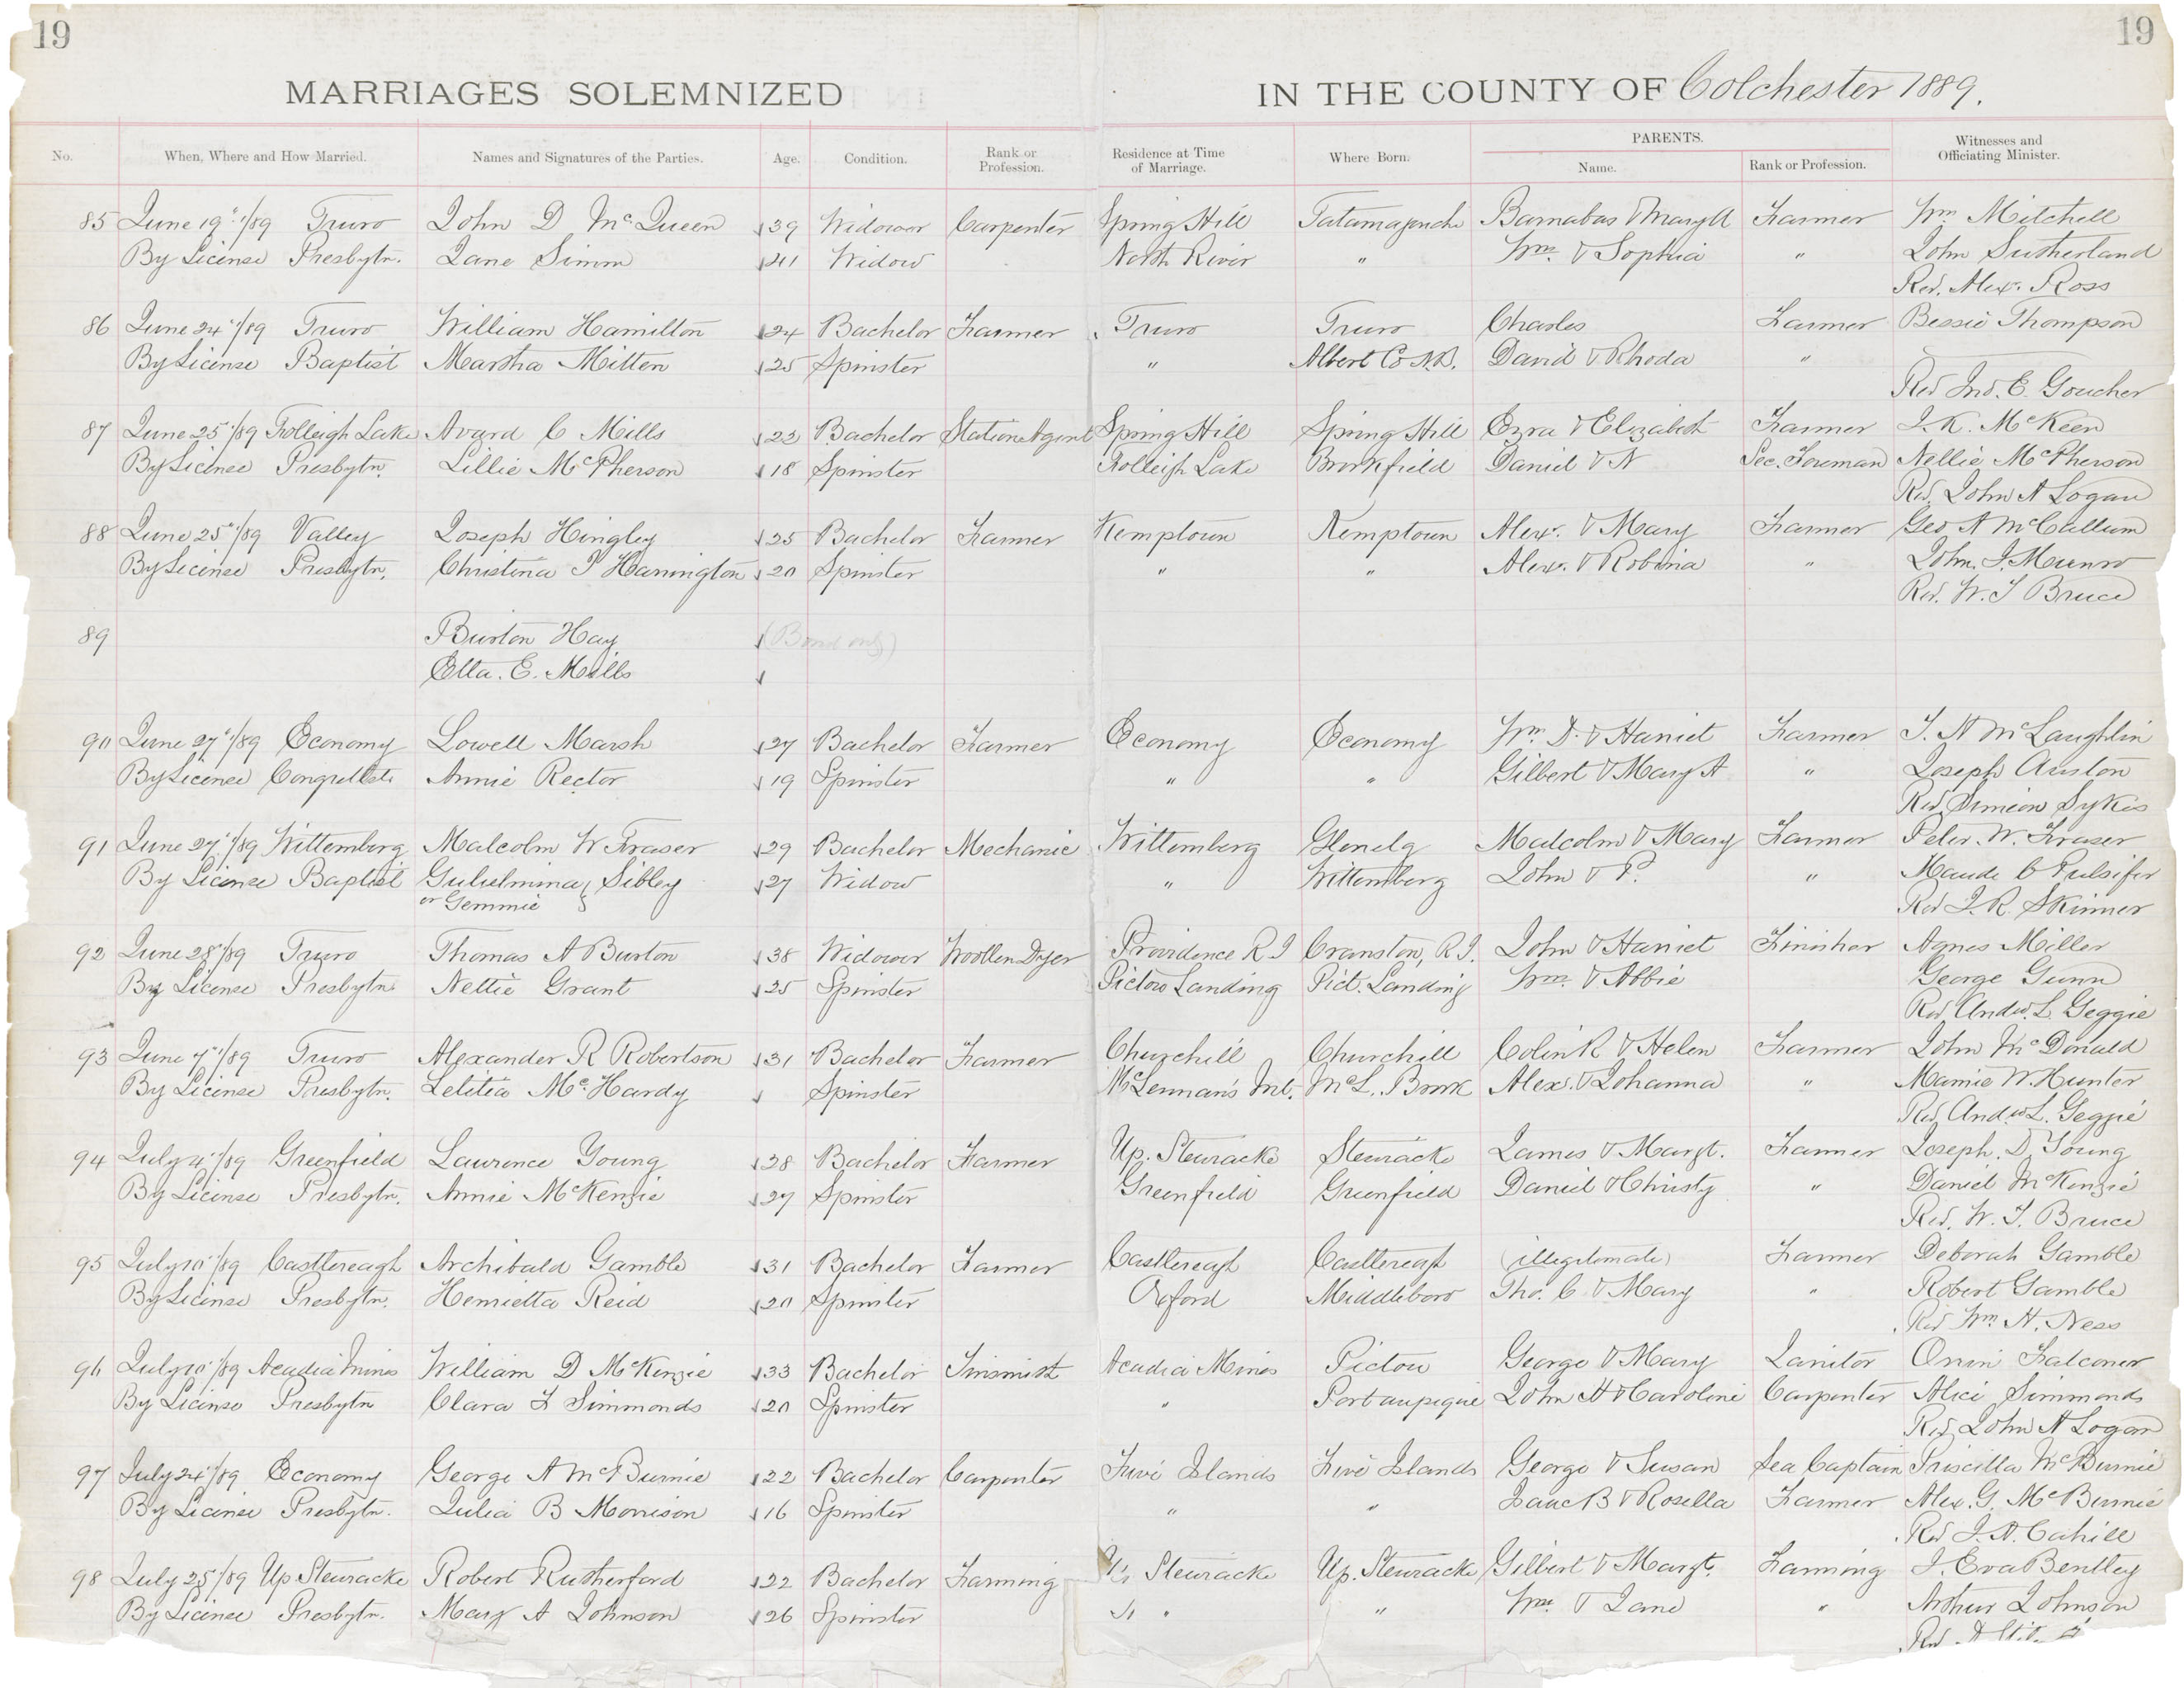 19 19
MARRIAGES SOLEMNIZED IN THE COUNTY OF Colchester 1889.
No. When, Where and How Married. Names and Signatures of the Parties. Age. Condition. Rank or Profession. Residence at Time of Marriage. Where Born. PARENTS. Name. Rank or Profession. Witnesses and Officiating Minister.
85 June 19"/89 Truro John D McQueen 39 Widower Carpenter Spring Hill Tatamagouche Barnabas & Mary A Farmer Wm Mitchell
By License Presbytn. Jane Simm 41 Widow North River " Wm. & Sophia " John Sutherland
Rev. Alex. Ross
86 June 24"/89 Truro William Hamilton 24 Bachelor Farmer Truro Truro Charles Farmer Bessie Thompson
By License Baptist Martha Mitten 25 Spinster " Albert Co N.B. David & Rhoda "
Rev Jno. E. Goucher
87 June 25"/89 Folleigh Lake Avard C Mills 22 Bachelor Station Agent Spring Hill Spring Hill Ezra & Elizabeth Farmer J. K. McKeen
By License Presbytn. Lillie McPherson 18 Spinster Folleigh Lake Brookfield Daniel & N Sec. Foreman Nellie McPherson
Rev. John A Logan
88 June 25"/89 Valley Joseph Hingley 25 Bachelor Farmer Kemptown Kemptown Alex. & Mary Farmer Geo A McCallum
By License Presbytn. Christina P Hanington 20 Spinster " " Alex. & Robina " John. J. Munro
Rev. W. T Bruce
89 Burton Hay (Bond only)
Etta. E. Mills
90 June 27"/89 Economy Lowell Marsh 27 Bachelor Farmer Economy Economy Wm. D. & Harriet Farmer T. N McLaughlin
By License Annie Rector 19 Spinster " " Gilbert & Mary A " Joseph Auston
Rev. Simeon Sykes
91 June 27"/89 Wittemberg Malcolm W Fraser 29 Bachelor Mechanic Wittemberg Glenelg Malcolm & Mary Farmer Peter. W. Fraser
By License Baptist Gulielmina Sibley 27 Widow " Wittemberg John & P. " Maude C Pulsifer
or Gemmie Rev J. R. Skinner
92 June 28"/89 Truro Thomas A Burton 38 Widower Woollen Dyer Providence R I Cranston, R.I. John & Harriet Finisher Agnes Miller
By License Presbytn. Nettie Grant 25 Spinster Pictou Landing Pict. Landing Wm. & Abbie George Gunn
Rev. Andw. L. Geggie
93 June 7"/89 Truro Alexander R Robertson 31 Bachelor Farmer Churchill Churchill Colin R & Helen Farmer John McDonald
By License Presbytn. Letitia McHardy Spinster McLennan's Mt. McL. Brook Alex. & Johanna " Mamie W. Hunter
Rev. Andw L. Geggie
94 July 4"/89 Greenfield Lawrence Young 28 Bachelor Farmer Up. Stewiacke Stewiacke James & Margt. Farmer Joseph. D. Young
By License Presbytn. Annie McKenzie 27 Spinster Greenfield Greenfield Daniel & Christy " Daniel McKenzie
Rev. W. T. Bruce
95 July 10"/89 Castlereagh Archibald Gamble 31 Bachelor Farmer Castlereagh Castlereagh (illegitimate) Farmer Deborah Gamble
By License Presbytn. Henrietta Reid 20 Spinster Oxford Middleboro Tho. C & Mary " Robert Gamble
Rev Wm. H. Ness
96 July 10"/89 Acadia Mines William D McKenzie 33 Bachelor Tinsmith Acadia Mines Pictou George & Mary Janitor Orrin Falconer
By License Presbytn Clara F Simmonds 20 Spinster " Portaupique John H & Caroline Carpenter Alice Simmonds
Rev. John A Logan
97 July 24"/89 Economy George A McBurnie 22 Bachelor Carpenter Five Islands Five Islands George & Susan Sea Captain Priscilla McBurnie
By License Presbytn. Julia B Morrison 16 Spinster " " Isaac B & Rosella Farmer Alex. G. McBurnie
Rev J. A. Cahill
98 July 25"/89 Up Stewiacke Robert Rutherford 22 Bachelor Farming Up Stewiacke Up. Stewiacke Gilbert & Margt. Farming J. Eva Bentley
By License Presbytn. Mary A Johnson 26 Spinster " " Wm. & Jane " Arthur Johnson
Rev.